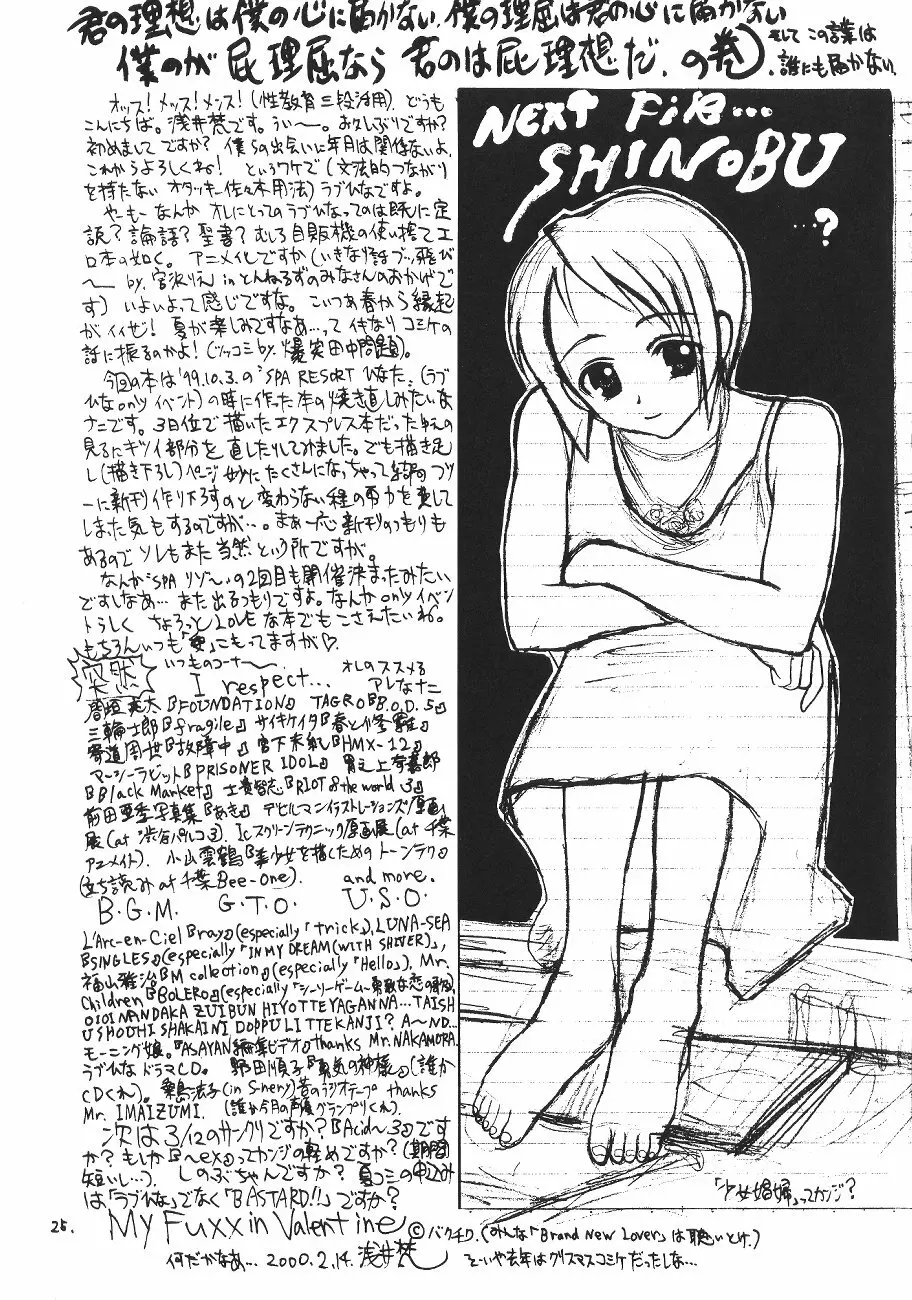 君の理想は僕の心に届かない、僕の理屈は君の心に届かない
僕のが屁理屈なら君のは屁理想だ、の巻)そして この言葉は
誰にも届かない.
オッス!メッス!メンス!(性教育三段活用).どうも
こんにちは。浅井梵です。うぃ〜。お久しぶりですか?
初めましてですか? 僕らの出会いに年月は関係ないよ.
これからよろしくね! というワケで(文法的つながり
を持たない オタッキー佐々木用法)ラブひなですよ。
やーもー なんか オレにとってのラブひなってのは既に定
説?論語?聖書?むしろ自販機の使い捨てエ
ロ本の如く。アニメ化ですか(いきなり話ブッ飛び
〜 by.宮沢りえ in とんねるずのみなさんのおかげで
す)いよいよって感じですな。こいつぁ春から縁起
がイイぜ!夏が楽しみですなあ…って イキなり コミケの
話に振るのかよ!(ツッコミ by.爆笑田中問題)。
今回の本は'99.10.3.の"SPA RESORT ひなた"(ラブ
ひな onlyイベント)の時に作った本の焼き直しみたいな
ナニです。3日位で描いたエクスプレス本だったゆえ
見るにキツイ部分を直したりしてみました。でも描き足
し(描き下ろし)ページ 妙に たくさんになっちゃって結局フツ
ーに新刊作り下ろすのと変わらない程の労力を費して
しまった気もするのですが…。まぁ一応新刊のつもりも
あるので ソレもまた当然 という所ですが。
なんか"SPA リゾ〜"の2回目も開催決まったみたい
ですしなぁ… また出るつもりですよ。なんか onlyイベン
トらしく ちょろっと LOVEな本でもこさえたいね。
もちろんいつも「愛」こもってますが♡
突然 いつものコーナ〜. オレのススメる
I respect... アレなナニ
『FOUNDATION』 TAGRO『B.O.D.5』
三輪士郎『fragile』 サイキケイタ『春と修羅』
寄道周世『故障中』 宮下未紀『HMX-12』
マーシーラビット『PRISONER IDOL』
『Black Market』 士貴智志『RIOT of the world 3』
前田亜季写真集『あき』 デビルマンイラストレーションズ原画
展(at 渋谷パルコ3). Icスクリーンテクニック原画展(at 千葉
アニメイト). 小山雲鶴『美少女を描くためのトーンテク』
(立ち読み at 千葉 Bee-One). and more.
B.G.M. G.T.O. U.S.O.
L'Arc-en-Ciel『ray』(especially「trick」), LUNA-SEA
『SINGLES』(especially「IN MY DREAM(WITH SHIVER)」,
福山雅治『M collection』(especially「Hello」), Mr.
Children『BOLERO』(especially「シーソーゲーム〜勇敢な恋の歌」),
0101 NANDAKA ZUIBUN HIYOTTEYAGANNA...TAISH
USHOUHI SHAKAINI DOPPULITTEKANJI? A〜ND...
モーニング娘。『ASAYAN編集ビデオ』thanks Mr.NAKAMURA.
ラブひなドラマCD。 野田順子『勇気の神様』(誰か
CDくれ)。 桑島法子(in S-nery)昔のラジオテープ thanks
Mr. IMAIZUMI. (誰か今月の声優グランプリくれ).
次は3/12のサンクリですか?『Acid〜3』です
か?もしか『〜ex』ってカンジの軽めですか?(期間
短いし…). しのぶちゃんですか?夏コミの申込み
は「ラブひな」でなく「BASTARD!!」ですか?
My Fuxx in Valentine ©バクチク.(みんな「Brand New Lover」は聴いとけ.)
何だかなあ… 2000.2.14. 浅井梵 そーいや去年はクリスマスコミケだったしな…
25.
NEXT FiRe...
SHINOBU
...?
「少女娼婦」ってカンジ?